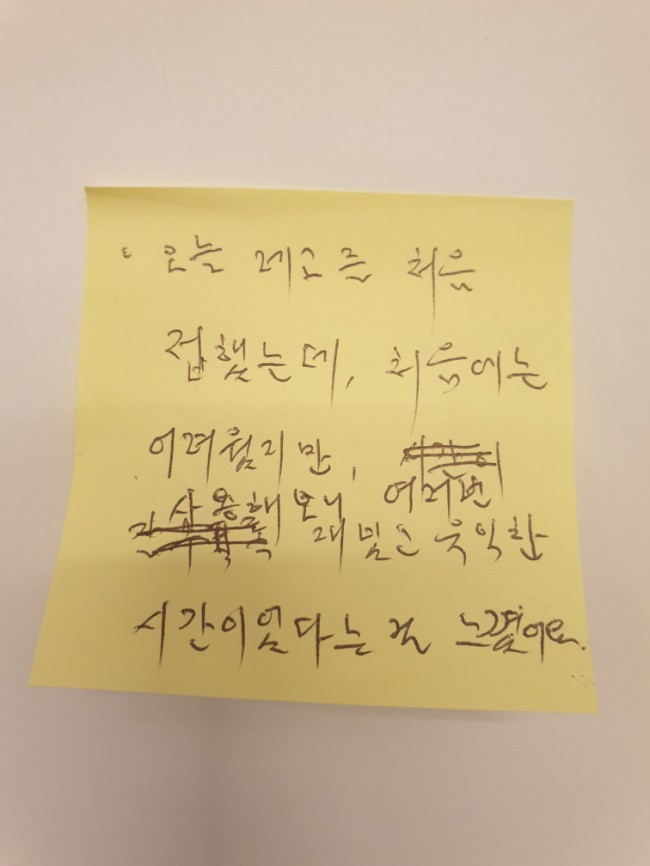 오늘 레고를 처음
접했는데, 처음에는
어려웠지만, 여러번
사용해보니
재밌고 유익한
시간이었다는 걸 느꼈어요.